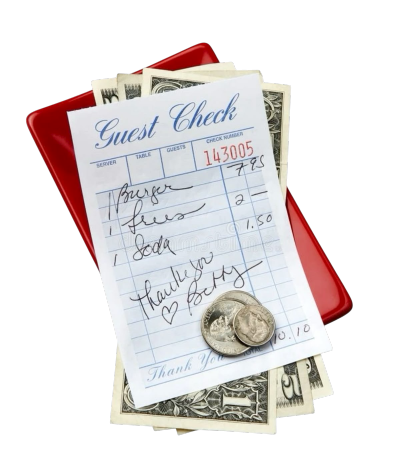 Guest Check
SERVER TABLE GUESTS CHECK NUMBER
143005
1 Burger 7.95
1 Fries 2 —
1 Soda 1.50
Thank you
♡ Betty
10.10
Thank You
1